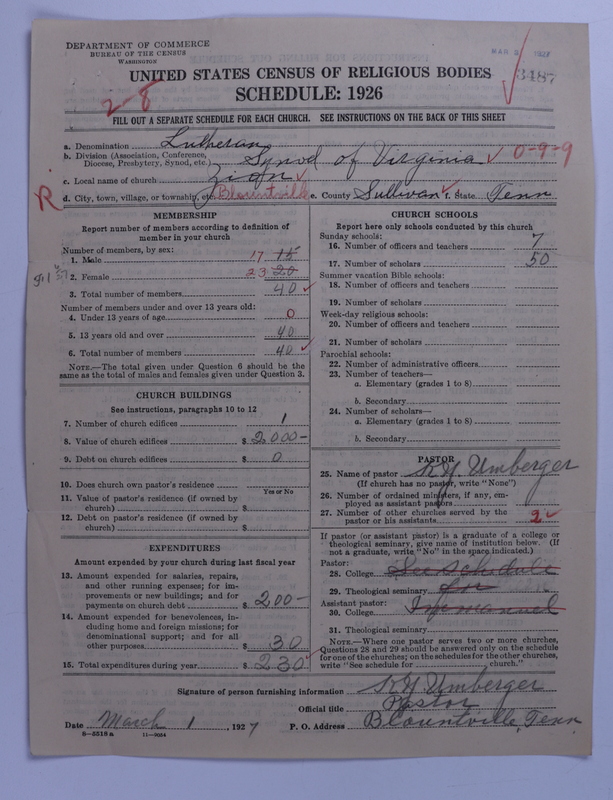 DEPARTMENT OF COMMERCE
BUREAU OF THE CENSUS
WASHINGTON
MAR 2 1927
3487
UNITED STATES CENSUS OF RELIGIOUS BODIES
SCHEDULE: 1926
2-8
FILL OUT A SEPARATE SCHEDULE FOR EACH CHURCH. SEE INSTRUCTIONS ON THE BACK OF THIS SHEET
a. Denomination Lutheran
b. Division (Association, Conference, Diocese, Presbytery, Synod, etc.) Synod of Virginia 0-9-9
c. Local name of church Zion
R d. City, town, village, or township, etc. Blountville e. County Sullivan f. State Tenn
MEMBERSHIP
Report number of members according to definition of
member in your church
Number of members, by sex:
1. Male 17 15
2. Female 23 20
3. Total number of members 40
Number of members under and over 13 years old:
4. Under 13 years of age 0
5. 13 years old and over 40
6. Total number of members 40
NOTE.—The total given under Question 6 should be
same as the total of males and females given under Question 3.
CHURCH BUILDINGS
See instructions, paragraphs 10 to 12
7. Number of church edifices 1
8. Value of church edifices $ 2,000-
9. Debt on church edifices $ 0
10. Does church own pastor's residence
Yes or No
11. Value of pastor's residence (if owned by
church) $
12. Debt on pastor's residence (if owned by
church) $
EXPENDITURES
Amount expended by your church during last fiscal year
13. Amount expended for salaries, repairs,
and other running expenses; for im-
provements or new buildings; and for
payments on church debt $ 200-
14. Amount expended for benevolences, in-
cluding home and foreign missions; for
denominational support; and for all
other purposes $ 30
15. Total expenditures during year $ 230
CHURCH SCHOOLS
Report here only schools conducted by this church
Sunday schools:
16. Number of officers and teachers 7
17. Number of scholars 50
Summer vacation Bible schools:
18. Number of officers and teachers
19. Number of scholars
Week-day religious schools:
20. Number of officers and teachers
21. Number of scholars
Parochial schools:
22. Number of administrative officers
23. Number of teachers—
a. Elementary (grades 1 to 8)
b. Secondary
24. Number of scholars—
a. Elementary (grades 1 to 8)
b. Secondary
PASTOR
25. Name of pastor K Y Umberger
(If church has no pastor, write "None")
26. Number of ordained ministers, if any, em-
ployed as assistant pastors
27. Number of other churches served by the
pastor or his assistants 2
If pastor (or assistant pastor) is a graduate of a college or
theological seminary, give name of institution below. (If
not a graduate, write "No" in the space indicated.)
Pastor:
28. College See schedule
29. Theological seminary for
Assistant pastor:
30. College Immanuel
31. Theological seminary
NOTE.—Where one pastor serves two or more churches,
Questions 28 and 29 should be answered only on the schedule
for one of the churches; on the schedules for the other churches,
write "See schedule for church."
Signature of person furnishing information K Y Umberger
Official title Pastor
Date March 1, 1927 P. O. Address Blountville, Tenn
8-5518a 11-9034